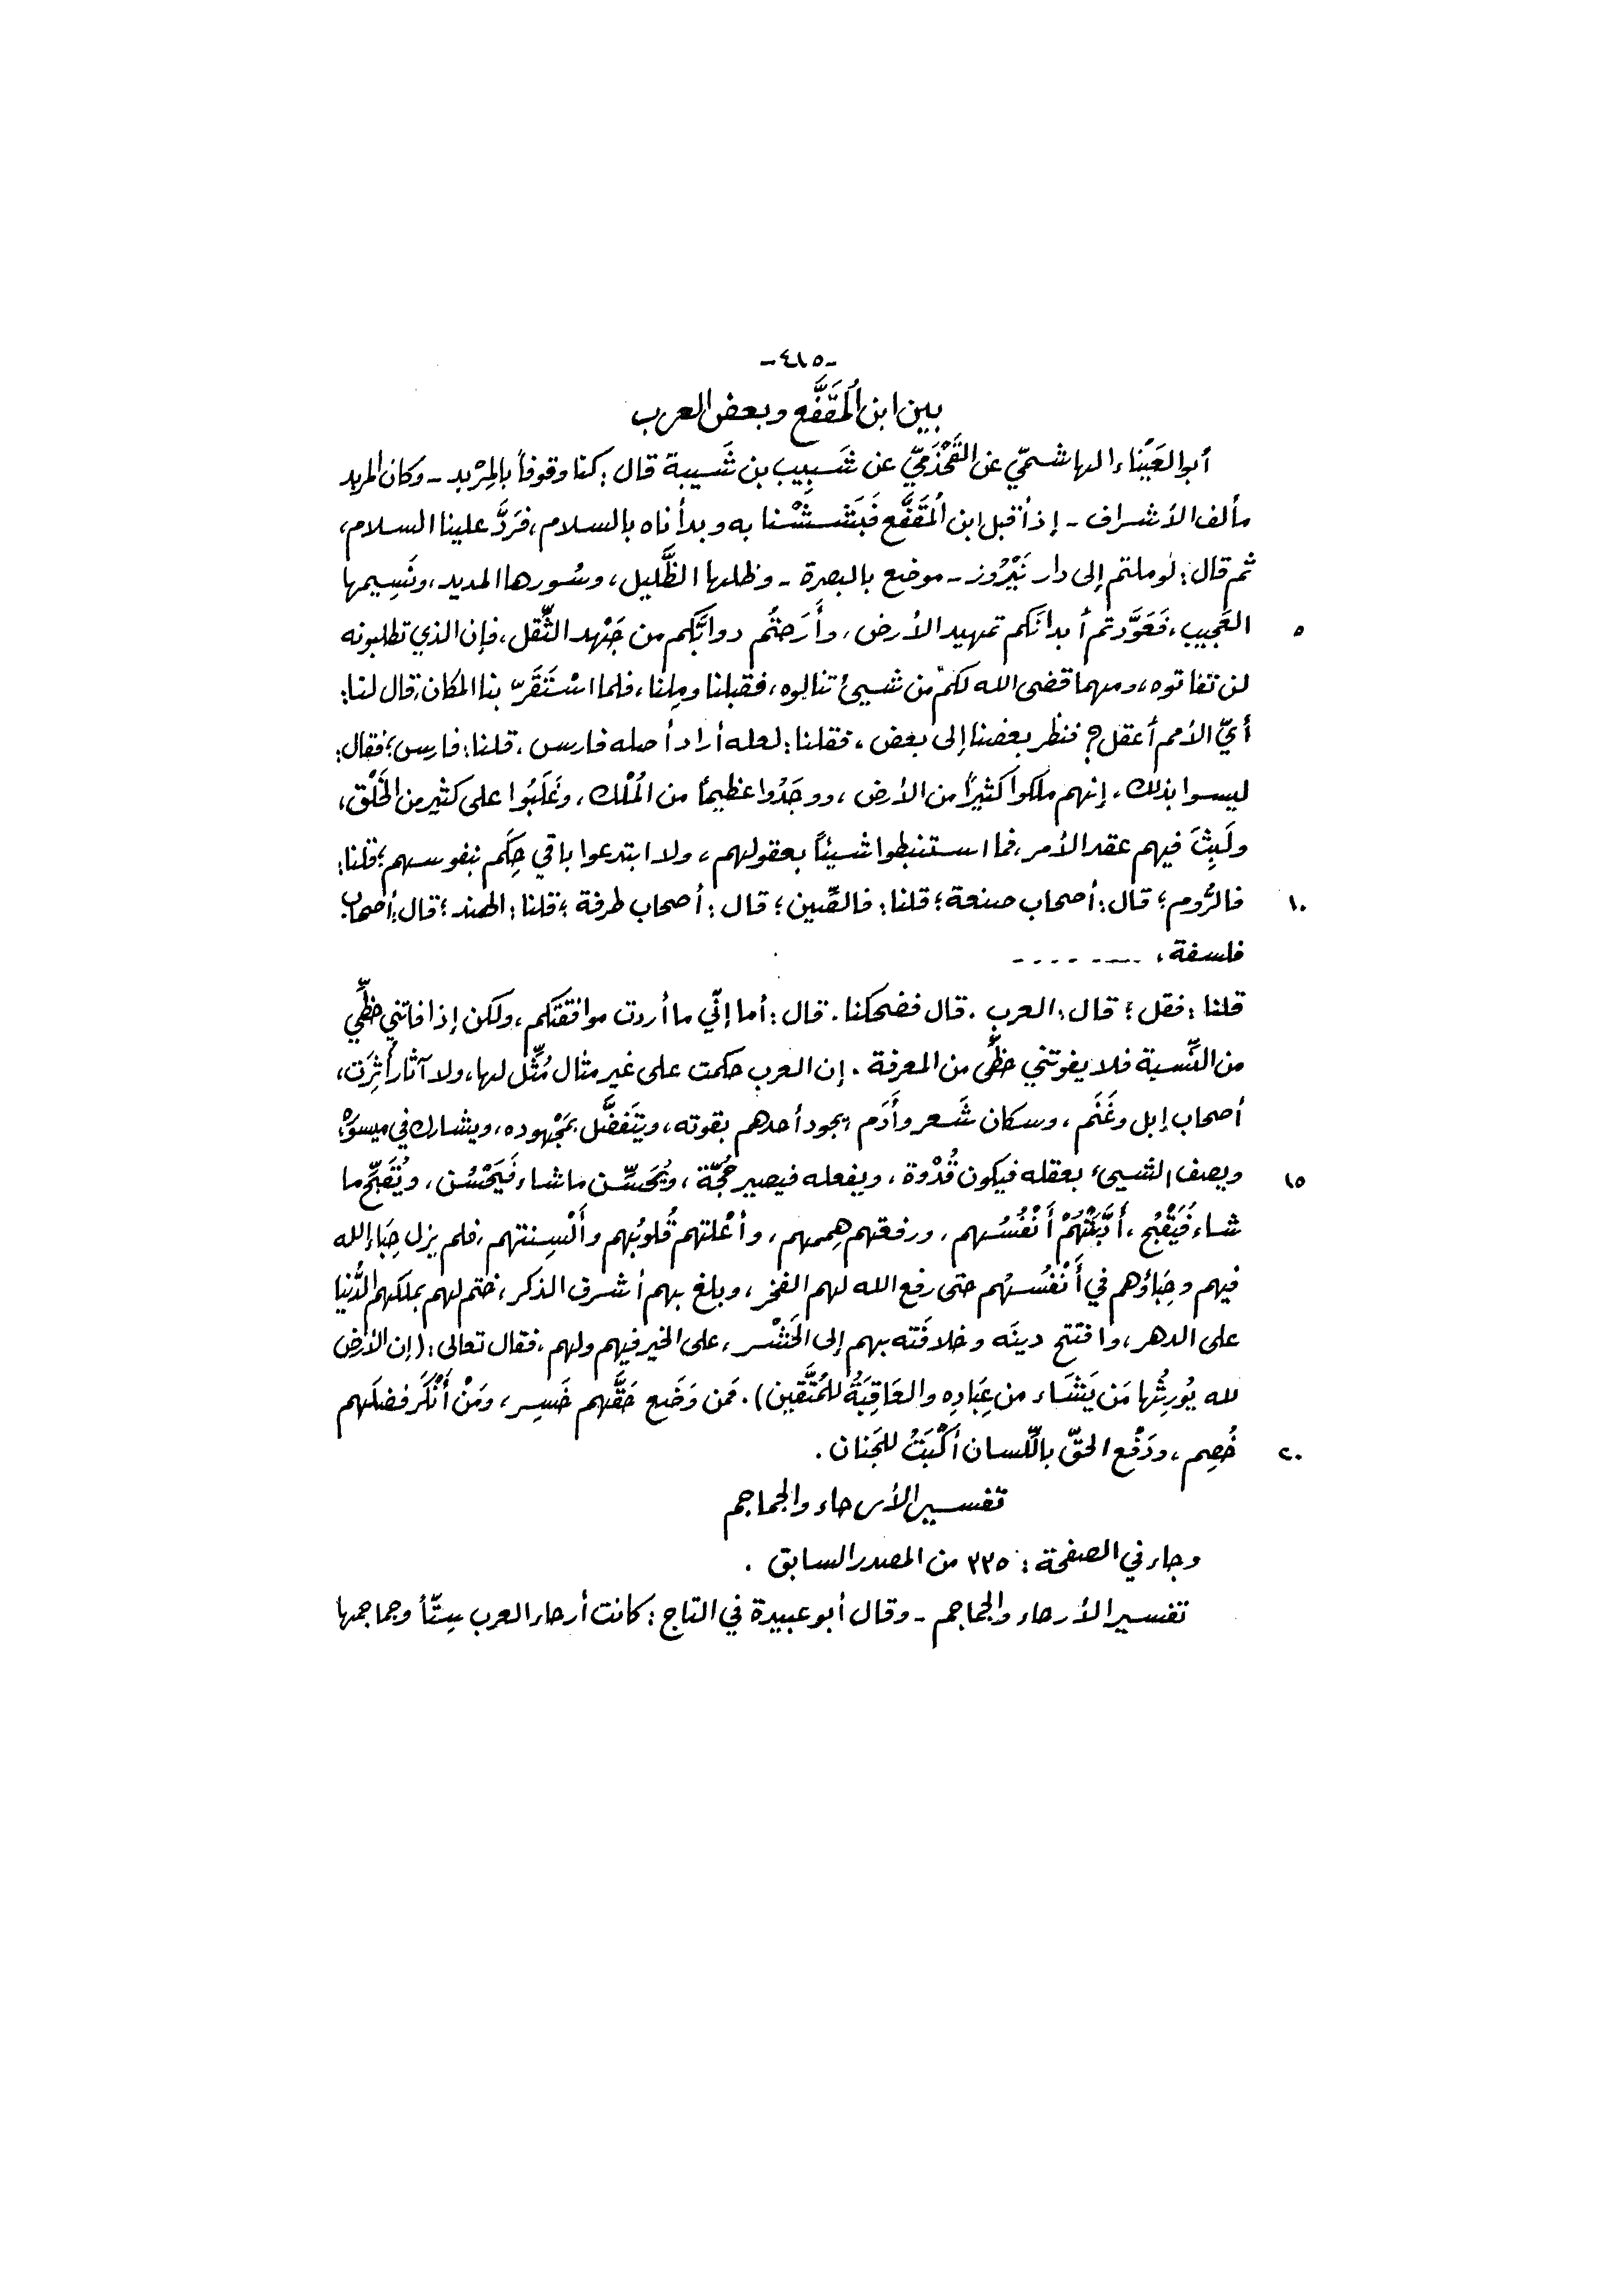 -٤١٥-
بين ابن المُقَفَّع وبعض العرب
أبو العَيْناء الهاشميّ عن القَحْذَميّ عن شَبِيب بن شَيبة قال : كنا وقوفاً بالمِرْبد - وكان المربد
مألف الأشراف - إذ أقبل ابن المُقَفَّع فَبَشَشْنا به وبدأناه بالسلام ، فرَدَّ علينا السلام ،
ثم قال : لو ملتم إلى دار نَيْرُوز - موضع بالبصرة - وظلها الظَّليل ، وسُورها المديد ، ونَسِيمها
٥ العَجيب ، فَعَوَّدتم أبدانَكم تمهيد الأرض ، وأَرَحتُم دوابَّكم من جَهْد الثِّقل ، فإن الذي تطلبونه
لن تفاتوه ، ومهما قضى الله لكم من شيئ تنالوه ، فقبلنا ومِلنا ، فلما اسْتَقَرّ بنا المكان ، قال لنا :
أيّ الأمم أعقل ؟ فنظر بعضنا إلى بعض ، فقلنا : لعله أراد أصله فارس ، قلنا : فارس ؛ فقال :
ليسوا بذلك ، إنهم ملكوا كثيراً من الأرض ، ووجَدُوا عظيماً من المُلْك ، وغَلَبُوا على كثير من الخَلْق ،
ولَبِثَ فيهم عقد الأمر ، فما استنبطوا شيئاً بعقولهم ، ولا ابتدعوا باقي حِكَم بنفوسهم ؛ قلنا :
١٠ فالرُّوم ؛ قال : أصحاب صنعة ؛ قلنا : فالصِّين ؛ قال : أصحاب طرفة ؛ قلنا : الهند ؛ قال : أصحاب
فلسفة ، - - - - - -
قلنا : فقل ؛ قال : العرب . قال فضحكنا . قال : أما إنّي ما أردت موافقتكم ، ولكن إذا فاتني حظِّي
من النِّسبة فلا يفوتني حظِّى من المعرفة . إن العرب حكمت على غير مثال مُثِّل لها ، ولا آثار أُثِرَت ،
أصحاب إبل وغَنَم ، وسكان شَعر وأَدَم ؛ يجود أحدهم بقوته ، ويتَفضَّل بمَجْهوده ، ويشارك في ميسوره
١٥ ويصف الشيئ بعقله فيكون قُدْوة ، ويفعله فيصير حُجّة ، ويُحَسِّن ما شاء فَيَحْسُن ، ويُقَبِّح ما
شاء فَيَقْبُح ، أَدَّبَتْهُمْ أَنْفُسُهم ، ورفعتهم هِممهم ، وأعْلتهم قُلوبُهم وأَلْسِنتهم ، فلم يزل حِبَاء الله
فيهم وحِبَاؤهم في أَنْفُسهُم حتى رفع الله لهم الفخر ، وبلغ بهم أشرف الذكر ، ختم لهم بملكهم الدُّنيا
على الدهر ، وافتتح دينَه وخلافَته بهم إلى الحَشْر ، على الخير فيهم ولهم ، فقال تعالى : ( إن الأرض
لله يُورِثُها مَن يَشَاء من عِبَادِه والعَاقِبَةُ للمُتَّقين ) . فمن وَضَع حَقَّهم خَسِر ، ومَنْ أَنْكَر فضلَهم
٢٠ خُصِم ، ودَفْع الحقّ باللِّسان أكْبَتُ للجَنان .
تفسير الأرحاء والجماجم
وجاء في الصفحة : ٣٣٥ من المصدر السابق .
تفسير الأرحاء والجماجم - وقال أبو عبيدة في التاج : كانت أرحاء العرب سِتّاً وجماجمها